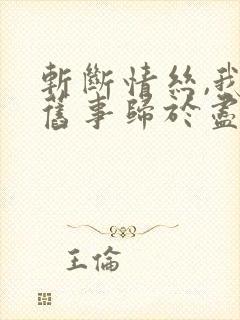 斬斷情絲,我
舊事歸於盡
王倫